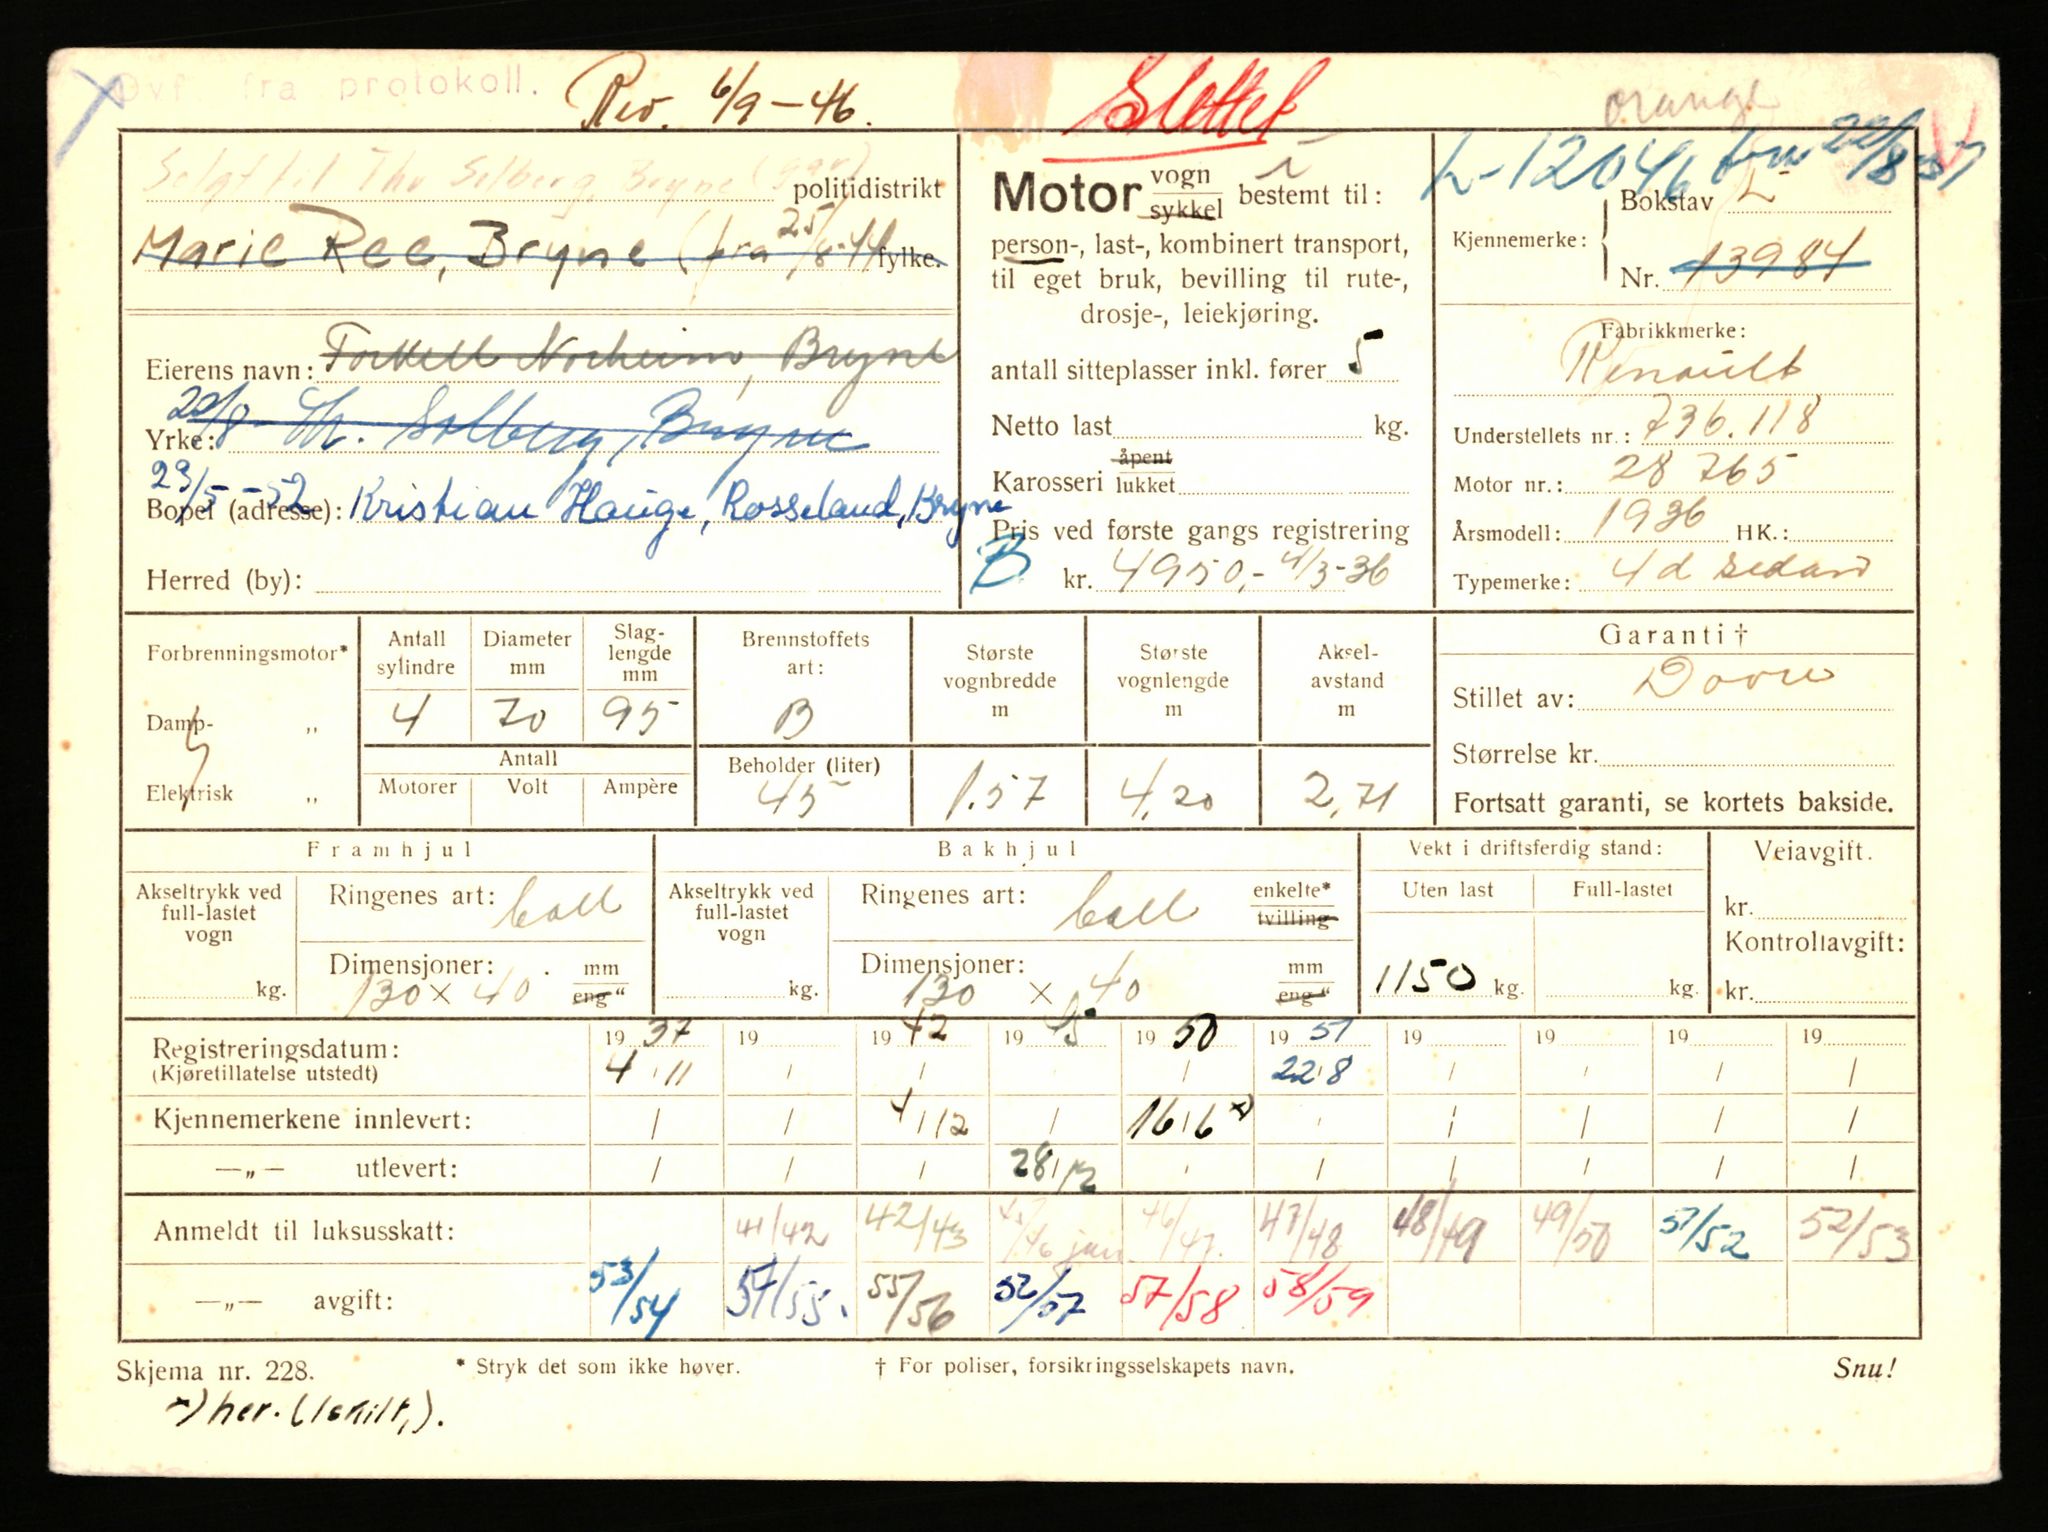 Ovf. fra protokoll.
Rev. 6/9 - 46.
Slettet
orange
L-12046 fra 22/8-51
Selgt til Thv Solberg, Bryne
politidistrikt
Marie Ree, Bryne (fra 25/8-44
fylke.
Eierens navn: Torkell Norheim, Bryne
22/8 Th. Solberg, Bryne
Yrke:
23/5-52 Kristian Hauge, Rosseland, Bryne
Bopel (adresse):
Herred (by):
Motor vogn sykkel bestemt til:
person-, last-, kombinert transport,
til eget bruk, bevilling til rute-,
drosje-, leiekjøring.
antall sitteplasser inkl. fører 5
Netto last kg.
Karosseri åpent lukket
Pris ved første gangs registrering
B kr. 4950,- 4/3-36
Kjennemerke: Bokstav L-
Nr. 13984
Fabrikkmerke:
Renault
Understellets nr.: 736.118
Motor nr.: 28 765
Årsmodell: 1936 HK.:
Typemerke: 4 d sedan
Forbrenningsmotor*
Damp- „
Elektrisk „
Antall sylindre 4
Diameter mm 70
Slag-lengde mm 95
Antall
Motorer Volt Ampère
Brennstoffets art: B
Beholder (liter) 45
Største vognbredde m 1.57
Største vognlengde m 4,20
Aksel-avstand m 2,71
Garanti †
Stillet av: Dovre
Størrelse kr.
Fortsatt garanti, se kortets bakside.
Framhjul
Akseltrykk ved full-lastet vogn kg.
Ringenes art: ball
Dimensjoner: mm eng "
130 x 40
Bakhjul
Akseltrykk ved full-lastet vogn kg.
Ringenes art: ball enkelte* tvilling
Dimensjoner: mm eng "
130 x 40
Vekt i driftsferdig stand:
Uten last Full-lastet
1150 kg. kg.
Veiavgift.
kr.
Kontrollavgift:
kr.
Registreringsdatum: 1937 19 1942 1945 1950 1951 19 19 19 19
(Kjøretillatelse utstedt) 4/11 22/8
Kjennemerkene innlevert: 4/12 16/6 x)
—„— utlevert: 28/12
Anmeldt til luksusskatt: 41/42 42/43 45/46 jan 46/47. 47/48 48/49 49/50 51/52 52/53
—„— avgift: 53/54 54/55. 55/56 56/57 57/58 58/59
Skjema nr. 228. * Stryk det som ikke høver. † For poliser, forsikringsselskapets navn. Snu!
x) her. (1 skilt,).